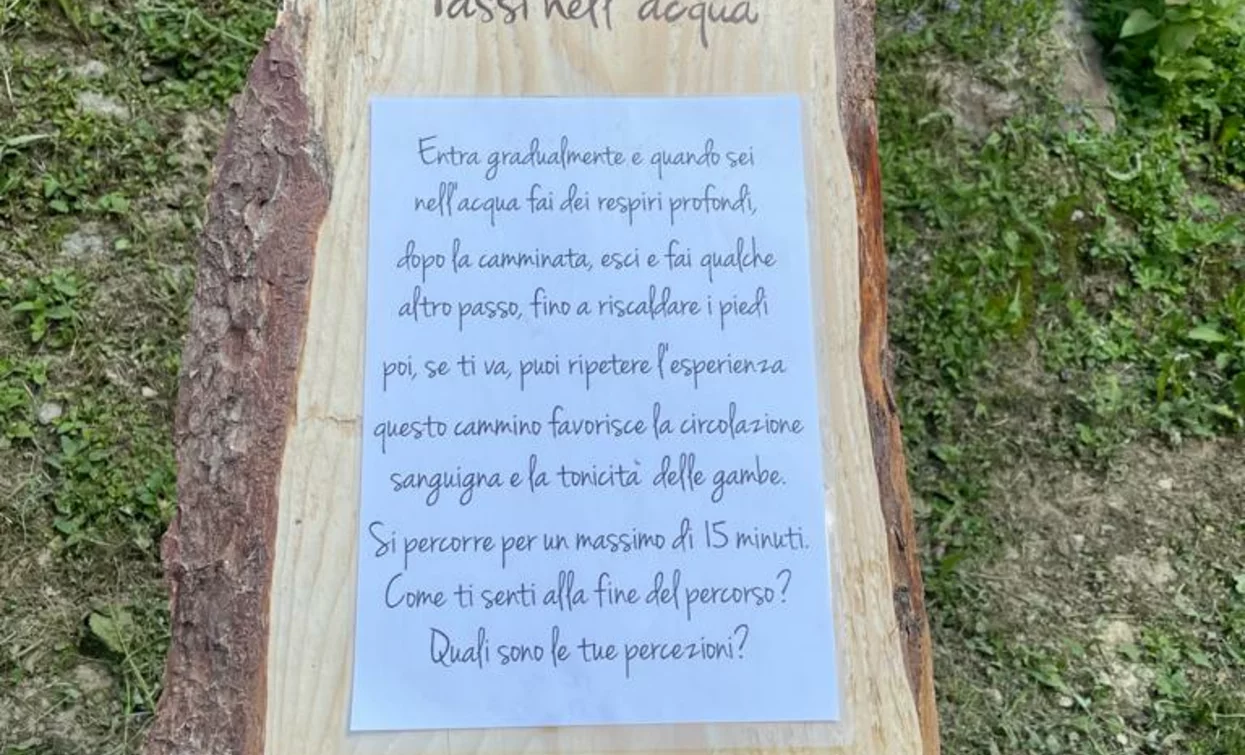 Passi nell'acqua
Entra gradualmente e quando sei
nell'acqua fai dei respiri profondi,
dopo la camminata, esci e fai qualche
altro passo, fino a riscaldare i piedi
poi, se ti va, puoi ripetere l'esperienza
questo cammino favorisce la circolazione
sanguigna e la tonicità delle gambe.
Si percorre per un massimo di 15 minuti.
Come ti senti alla fine del percorso?
Quali sono le tue percezioni?